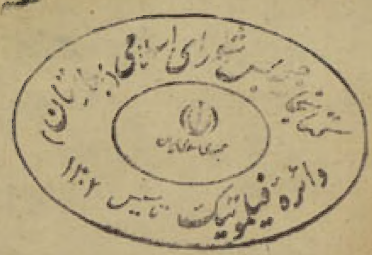 کتابخانه مجلس شورای اسلامی (بهارستان)
جمهوری اسلامی ایران
دائره فیلوتیک تاسیس ۱۳۰۲